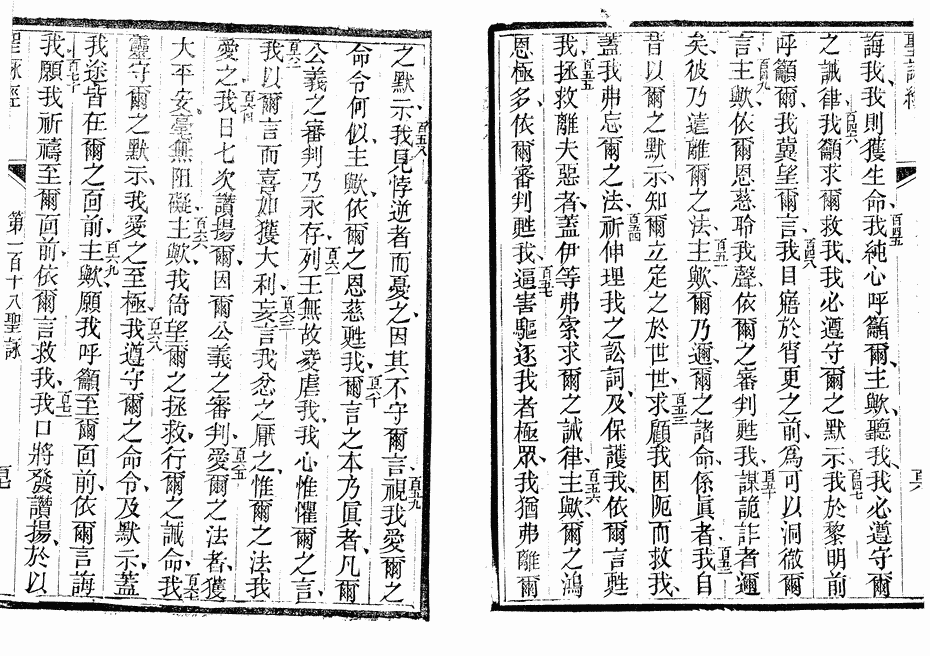 聖詠經
百六
誨我、我則獲生命、百四五我純心呼籲爾、主歟、聽我、我必遵守爾
之誡律、百四六我籲求爾救我、我必遵守爾之默示、百四七我於黎明前
呼籲爾、我冀望爾言、百四八我目寤於宵更之前、為可以洞徹爾
言、百四九主歟、依爾恩慈聆我聲、依爾之審判甦我、百五十謀詭詐者邇
矣、彼乃遠離爾之法、百五一主歟、爾乃邇、爾之諸命、係真者、百五二我自
昔以爾之默示、知爾立定之於世世、百五三求顧我困阨而救我、
蓋我弗忘爾之法、百五四祈伸理我之訟詞、及保護我、依爾言甦
我、百五五拯救離夫惡者、蓋伊等弗索求爾之誡律、百五六主歟、爾之鴻
恩極多、依爾審判甦我、百五七逼害驅逐我者極眾、我猶弗離爾
之默示、百五八我見悖逆者而憂之、因其不守爾言、百五九視我愛爾之
命令何似、主歟、依爾之恩慈甦我、百六十爾言之本乃真者、凡爾
公義之審判乃永存、百六一列王無故凌虐我、我心惟懼爾之言、
百六二我以爾言而喜、如獲大利、百六三妄言我忿之厭之、惟爾之法我
愛之、百六四我日七次讚揚爾、因爾公義之審判、百六五愛爾之法者、獲
大平安、毫無阻礙、百六六主歟、我倚望爾之拯救、行爾之誡命、百六七我
靈守爾之默示、我愛之至極、百六八我遵守爾之命令及默示、蓋
我途皆在爾之面前、百六九主歟、願我呼籲至爾面前、依爾言誨
我、百七十願我祈禱至爾面前、依爾言救我、百七一我口將發讚揚、於以
聖詠經
第一百十八聖詠
百七